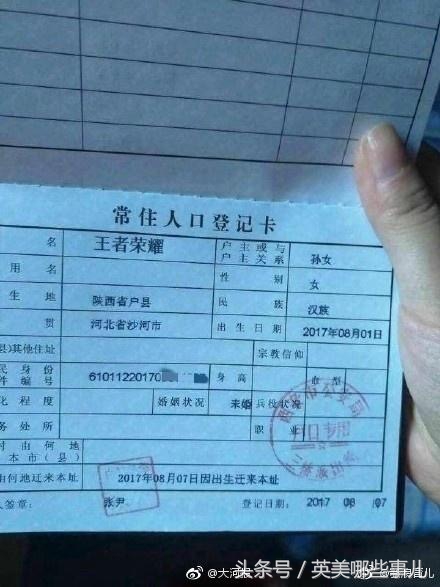 常住人口登记卡
名 王者荣耀 户主或与户主关系 孙女
用名 性别 女
生地 陕西省户县 民族 汉族
贯 河北省沙河市 出生日期 2017年08月01日
县)其他住址 宗教信仰
民身份件编号 6101122017 身高 血型
化程度 婚姻状况 未婚 兵役状况
务处所 职业
时由何地本市(县)
由何地迁来本址 2017年08月07日因出生迁来本址
人签章: 张尹 登记日期: 2017 08 07
@大河报
头条号 / 英美哪些事儿